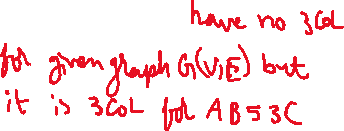 have no 3COL
for given graph G(V,E) but
it is 3COL for AB53C